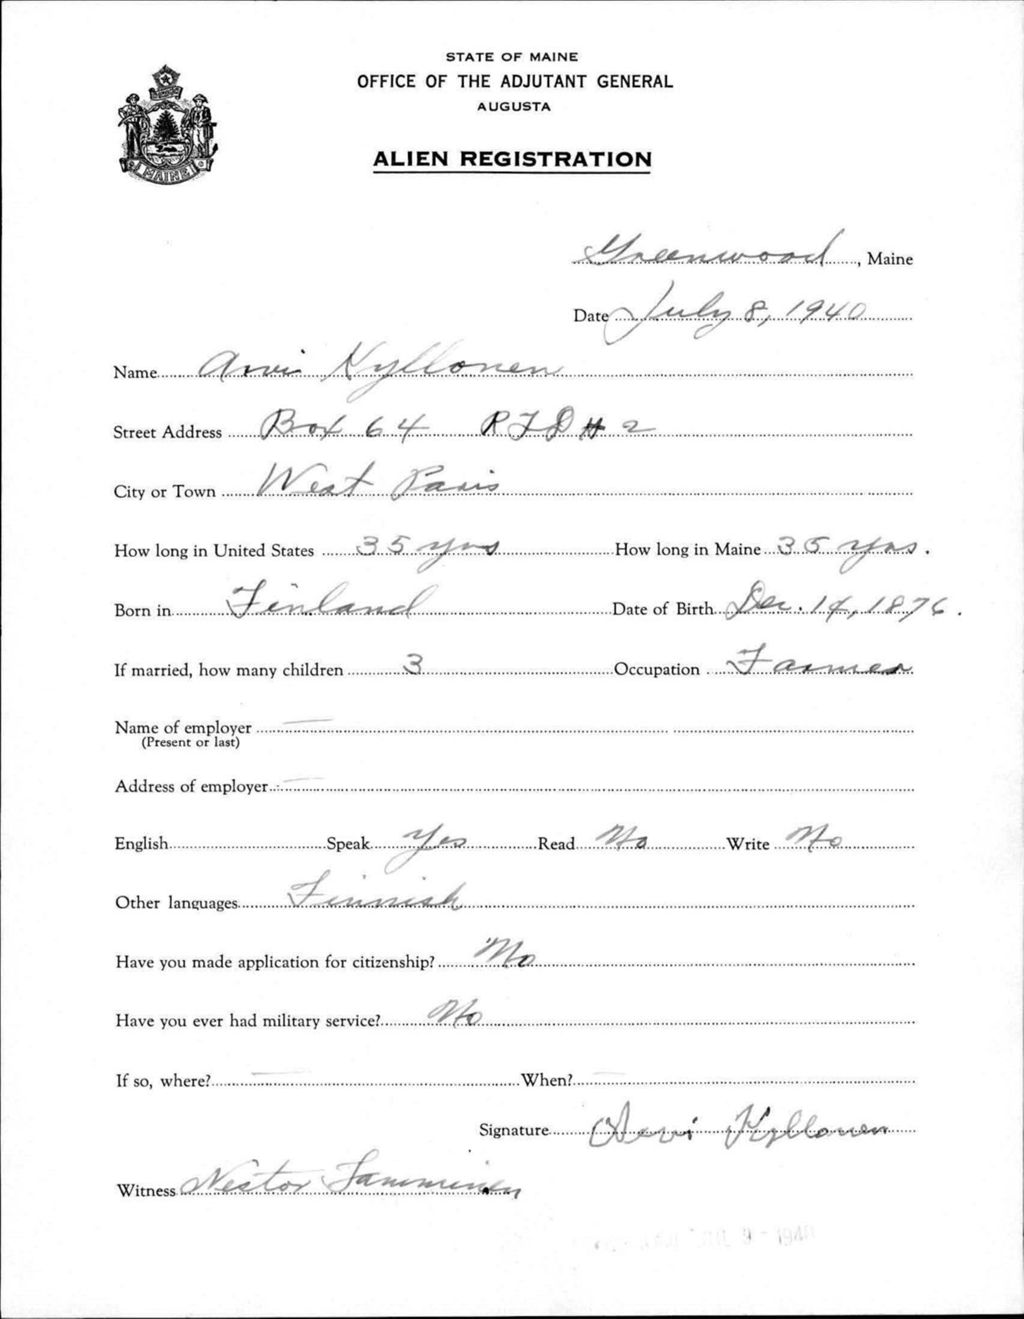 STATE OF MAINE
OFFICE OF THE ADJUTANT GENERAL
AUGUSTA
ALIEN REGISTRATION
MAINE
Greenwood, Maine
Date July 8, 1940
Name Arvi Kyllonen
Street Address Box 64 RFD # 2
City or Town West Paris
How long in United States 35 yrs How long in Maine 35 yrs.
Born in Finland Date of Birth Dec. 14, 1876.
If married, how many children 3 Occupation Farmer
Name of employer —
(Present or last)
Address of employer —
English Speak Yes Read No Write No
Other languages Finnish
Have you made application for citizenship? No
Have you ever had military service? No
If so, where? — When? —
Signature Arvi Kyllonen
Witness Nestor Tamminen